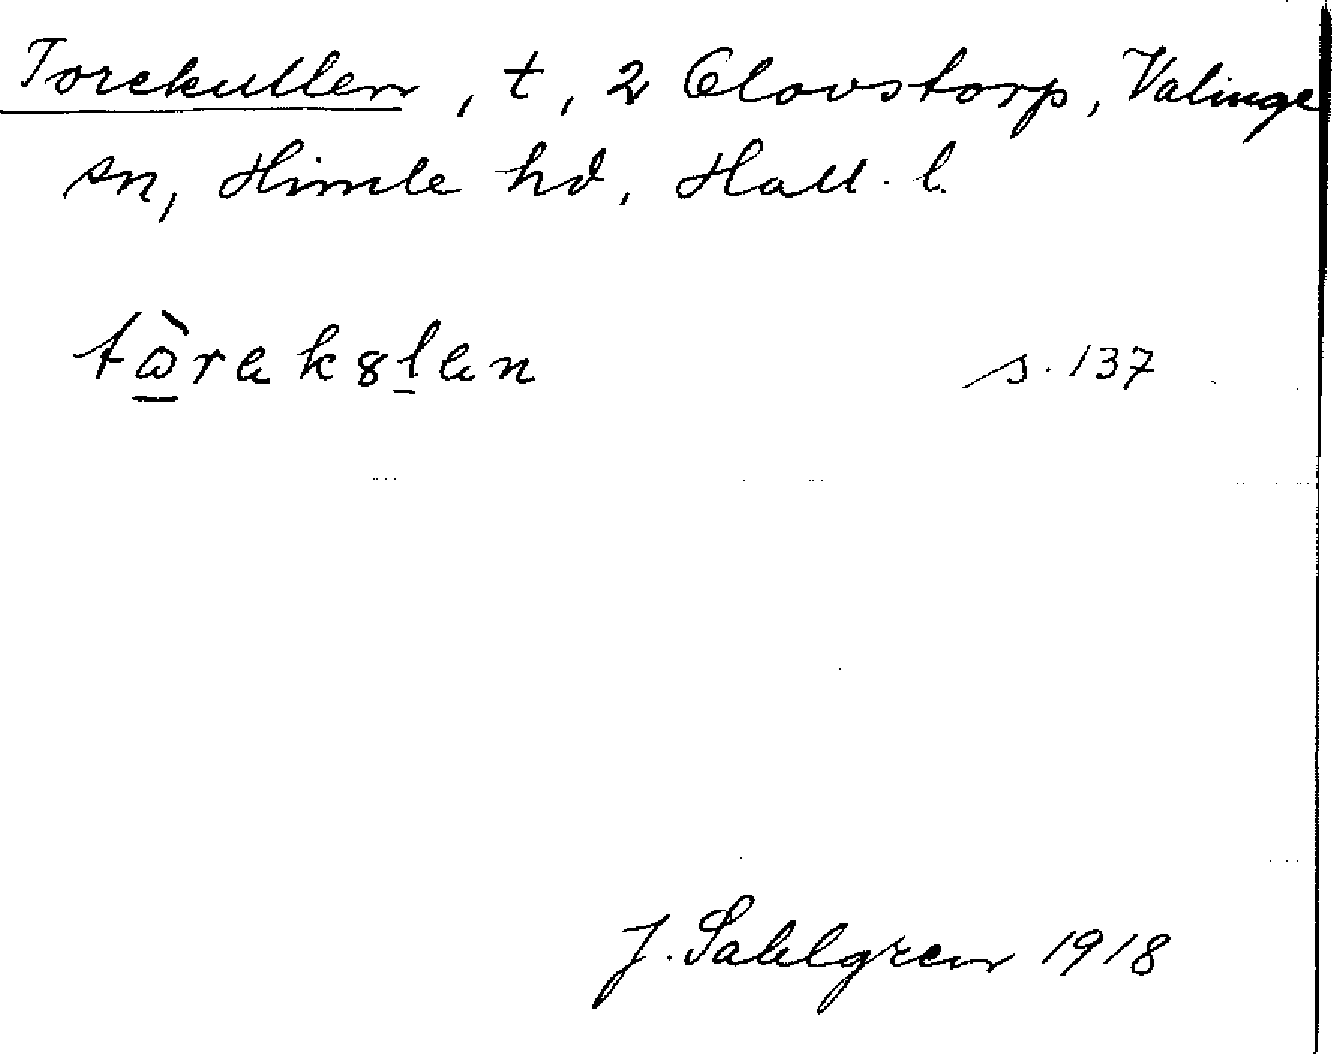 Torekullen, t, 2 Olovstorp, Valinge
sn, Himle hd, Hall. l.
tὼ̲rek8l̲en s. 137
J. Sahlgren 1918